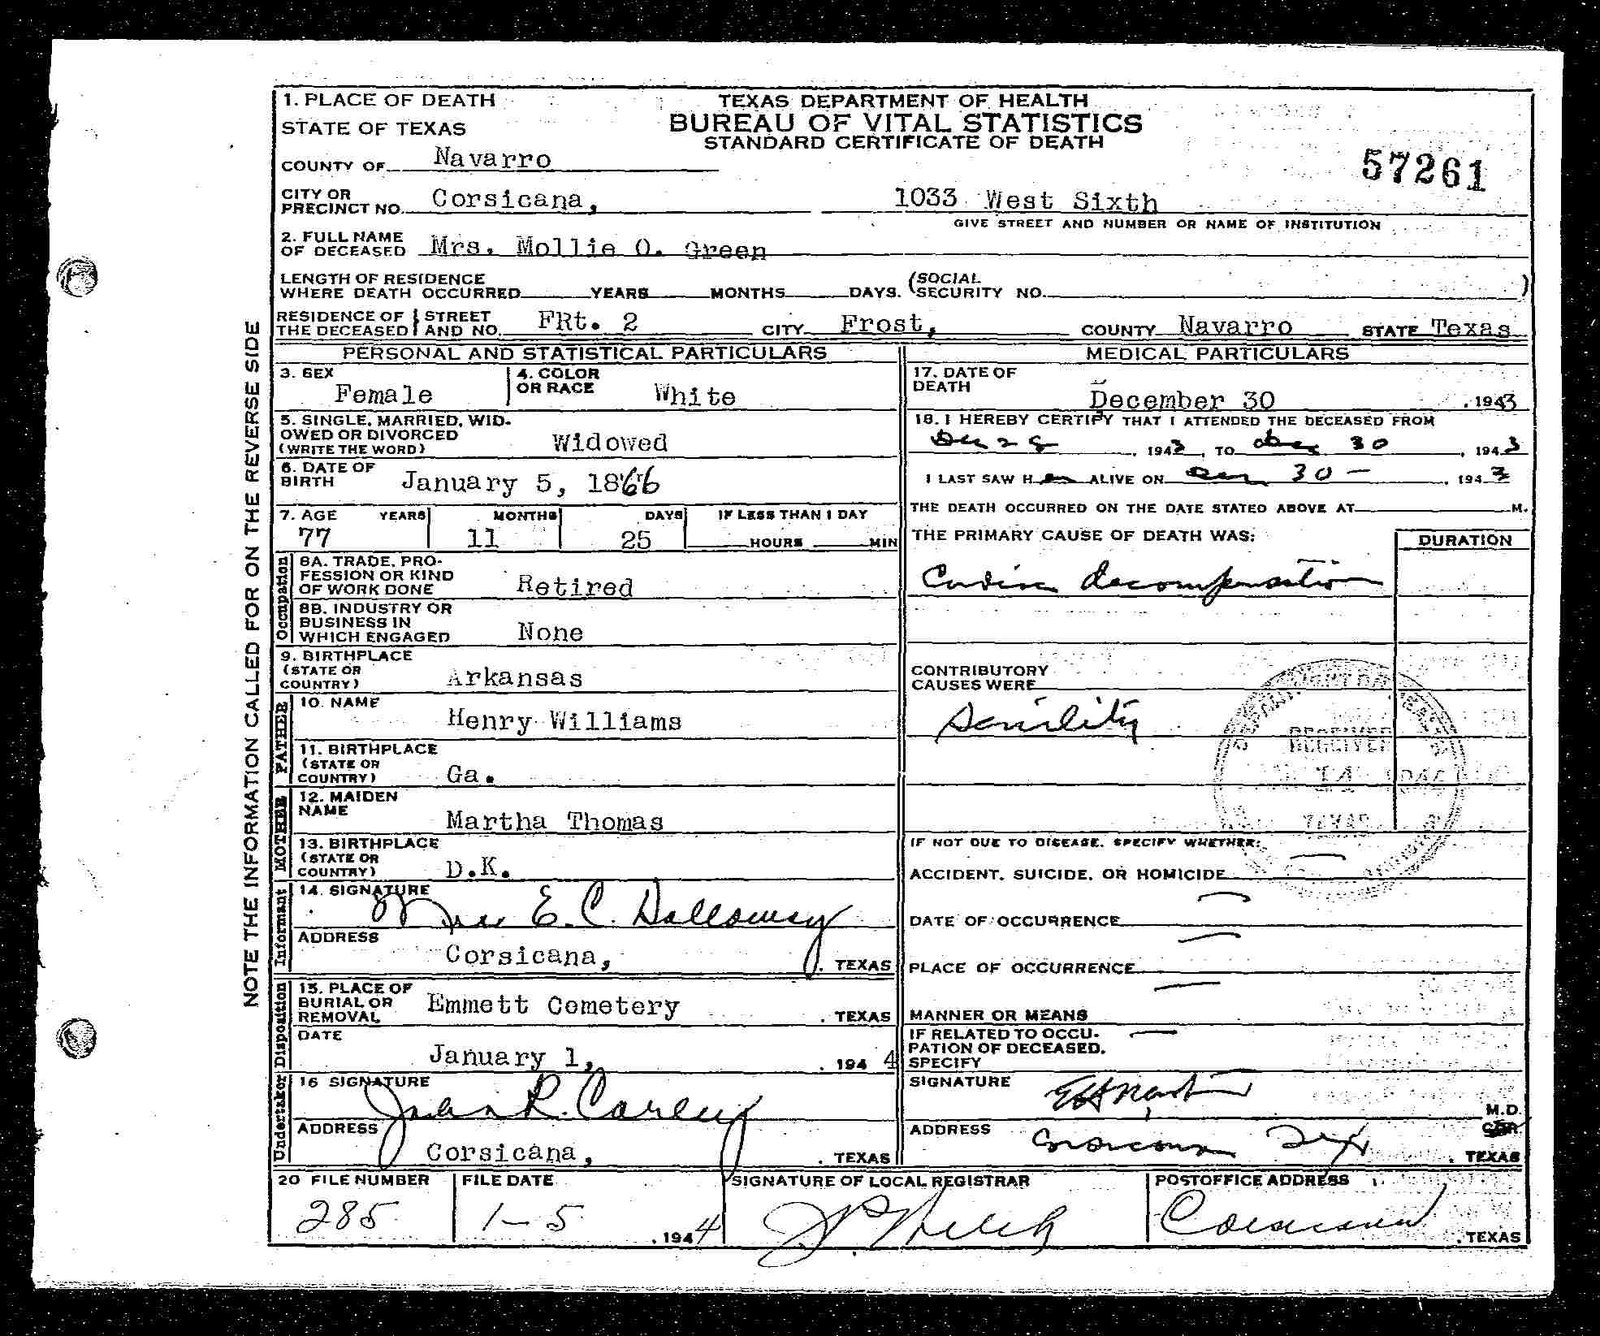 1. PLACE OF DEATH
STATE OF TEXAS
TEXAS DEPARTMENT OF HEALTH
BUREAU OF VITAL STATISTICS
STANDARD CERTIFICATE OF DEATH
57261
COUNTY OF Navarro
CITY OR PRECINCT NO. Corsicana, 1033 West Sixth
GIVE STREET AND NUMBER OR NAME OF INSTITUTION
2. FULL NAME OF DECEASED Mrs. Mollie O. Green
LENGTH OF RESIDENCE WHERE DEATH OCCURRED YEARS MONTHS DAYS. (SOCIAL SECURITY NO. )
RESIDENCE OF THE DECEASED STREET AND NO. FRt. 2 CITY Frost, COUNTY Navarro STATE Texas
PERSONAL AND STATISTICAL PARTICULARS
3. SEX Female
4. COLOR OR RACE White
5. SINGLE, MARRIED, WIDOWED OR DIVORCED (WRITE THE WORD) Widowed
6. DATE OF BIRTH January 5, 1866
7. AGE YEARS MONTHS DAYS IF LESS THAN 1 DAY
77 11 25 HOURS MIN
Occupation
8A. TRADE, PROFESSION OR KIND OF WORK DONE Retired
8B. INDUSTRY OR BUSINESS IN WHICH ENGAGED None
9. BIRTHPLACE (STATE OR COUNTRY) Arkansas
FATHER
10. NAME Henry Williams
11. BIRTHPLACE (STATE OR COUNTRY) Ga.
MOTHER
12. MAIDEN NAME Martha Thomas
13. BIRTHPLACE (STATE OR COUNTRY) D.K.
Informant
14. SIGNATURE Mrs E. C. Holloway
ADDRESS Corsicana, . TEXAS
Disposition
15. PLACE OF BURIAL OR REMOVAL Emmett Cometery . TEXAS
DATE January 1, . 194 4
Undertaker
16 SIGNATURE John R. Corley
ADDRESS Corsicana, . TEXAS
MEDICAL PARTICULARS
17. DATE OF DEATH December 30 . 1943
18. I HEREBY CERTIFY THAT I ATTENDED THE DECEASED FROM
Dec 28 , 1943, TO Dec 30 , 1943
I LAST SAW Her ALIVE ON Dec 30 - , 1943
THE DEATH OCCURRED ON THE DATE STATED ABOVE AT M.
THE PRIMARY CAUSE OF DEATH WAS: DURATION
Cardiac decompensation
CONTRIBUTORY CAUSES WERE
Senility
RECEIVED
TEXAS
IF NOT DUE TO DISEASE, SPECIFY WHETHER:
ACCIDENT, SUICIDE, OR HOMICIDE
DATE OF OCCURRENCE
PLACE OF OCCURRENCE
MANNER OR MEANS
IF RELATED TO OCCUPATION OF DECEASED, SPECIFY
SIGNATURE M.D.
ADDRESS Corsicana Tex . TEXAS
20 FILE NUMBER 285
FILE DATE 1-5 , 1944
SIGNATURE OF LOCAL REGISTRAR
POSTOFFICE ADDRESS Corsicana , TEXAS
NOTE THE INFORMATION CALLED FOR ON THE REVERSE SIDE